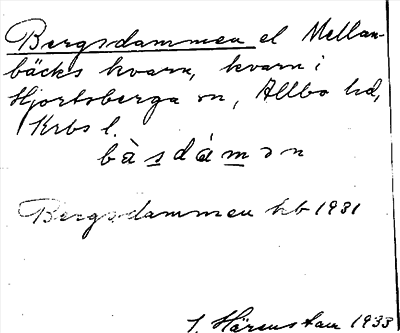 Bergsdammen el Mellan-
bäcks kvarn, kvarn i
Hjortsberga sn, Allbo hd,
Krbs l.
bàsdámən
Bergsdammen hb 1931
I. Härenstam 1933